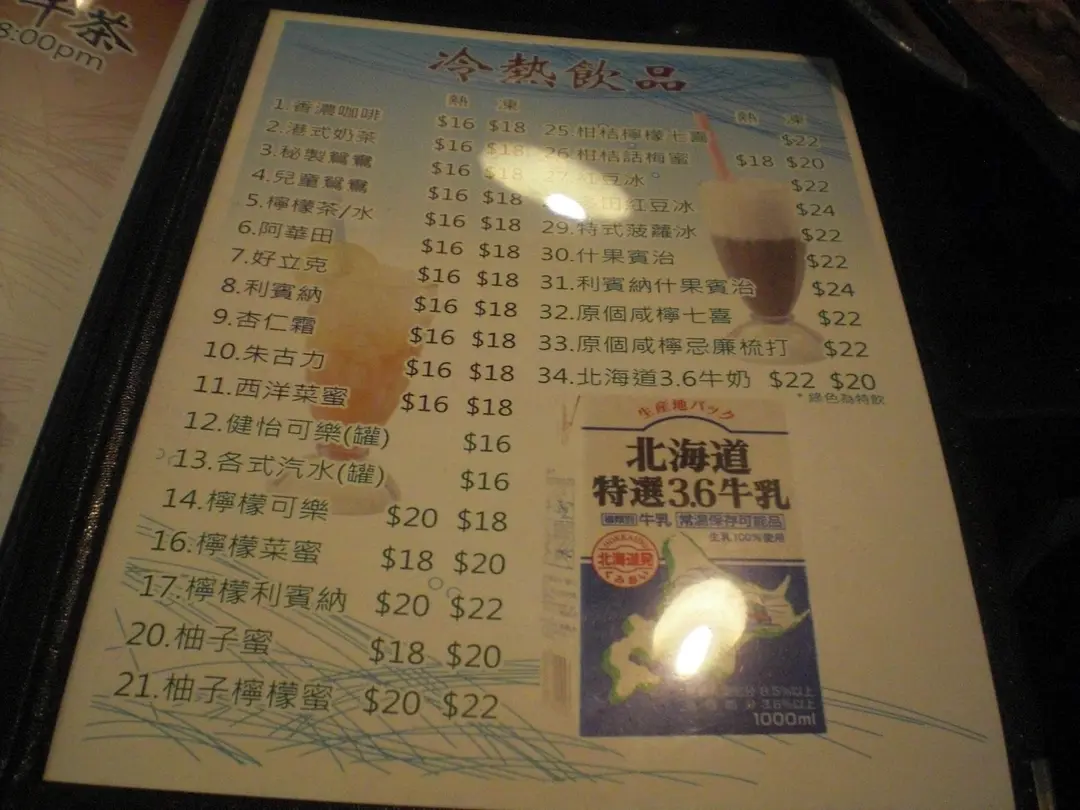 午茶
8:00pm
冷熱飲品
熱 凍
1.香濃咖啡 $16 $18
2.港式奶茶 $16 $18
3.秘製鴛鴦 $16 $18
4.兒童鴛鴦 $16 $18
5.檸檬茶/水 $16 $18
6.阿華田 $16 $18
7.好立克 $16 $18
8.利賓納 $16 $18
9.杏仁霜 $16 $18
10.朱古力 $16 $18
11.西洋菜蜜 $16 $18
12.健怡可樂(罐) $16
13.各式汽水(罐) $16
14.檸檬可樂 $20 $18
16.檸檬菜蜜 $18 $20
17.檸檬利賓納 $20 $22
20.柚子蜜 $18 $20
21.柚子檸檬蜜 $20 $22
熱 凍
25.柑桔檸檬七喜 $22
26.柑桔話梅蜜 $18 $20
27.紅豆冰 $22
田紅豆冰 $24
29.特式菠蘿冰 $22
30.什果賓治 $22
31.利賓納什果賓治 $24
32.原個咸檸七喜 $22
33.原個咸檸忌廉梳打 $22
34.北海道3.6牛奶 $22 $20
*綠色為特飲
生産地パック
北海道
特選3.6牛乳
種類別 牛乳 常温保存可能品
生乳100%使用
HOKKAIDO
北海道発
8.5%以上
3.6%以上
1000ml